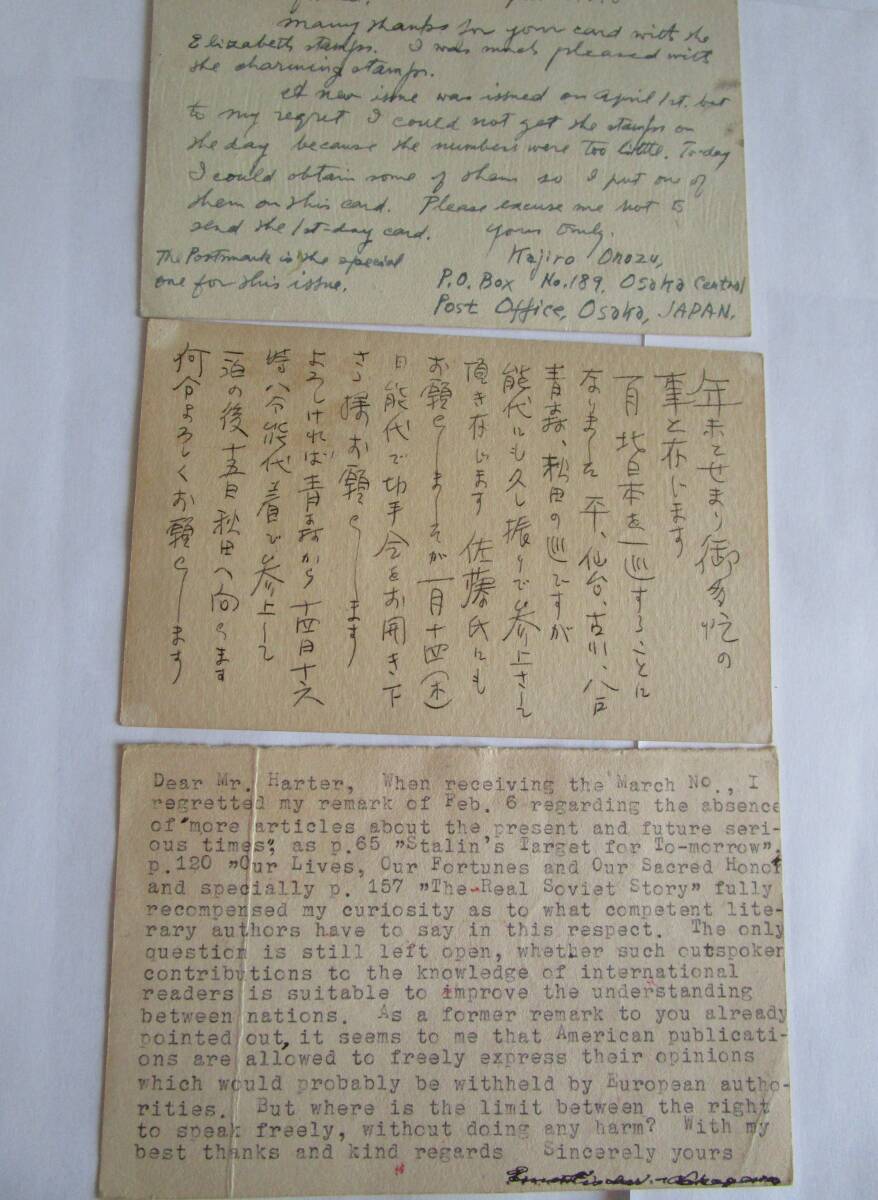 many thanks for your card with the
Elizabeth stamps. I was much pleased with
the charming stamps.
A new issue was issued on April 1st. but
to my regret I could not get the stamps on
the day because the numbers were too little. To-day
I could obtain some of them so I put one of
them on this card. Please excuse me not to
send the 1st-day card. yours truly.
The Postmark is the special
one for this issue.
Kajiro Onozu,
P.O. Box No.189, Osaka Central
Post Office, Osaka, JAPAN.
年末もせまり御多忙の
事と存じます
一月 北日本を一巡することに
なりました 平、仙台、古川、八戸
青森、秋田の巡ですが
能代にも久し振りで参上させて
頂き存じます 佐藤氏にも
お願いしましたが一月十四(木)
日能代で切手会をお開き下
さる様お願いします
よろしければ青森から十四日十六
時八分能代着で参上して
一泊の後十五日秋田へ向います
何分よろしくお願いします
Dear Mr. Harter, When receiving the March No., I
regretted my remark of Feb. 6 regarding the absence
of "more articles about the present and future seri-
ous times", as p.65 "Stalin's Target for To-morrow",
p.120 "Our Lives, Our Fortunes and Our Sacred Honor
and specially p. 157 "The Real Soviet Story" fully
recompensed my curiosity as to what competent lite-
rary authors have to say in this respect. The only
question is still left open, whether such outspoken
contributions to the knowledge of international
readers is suitable to improve the understanding
between nations. As a former remark to you already
pointed out, it seems to me that American publicati-
ons are allowed to freely express their opinions
which would probably be withheld by European autho-
rities. But where is the limit between the right
to speak freely, without doing any harm? With my
best thanks and kind regards Sincerely yours